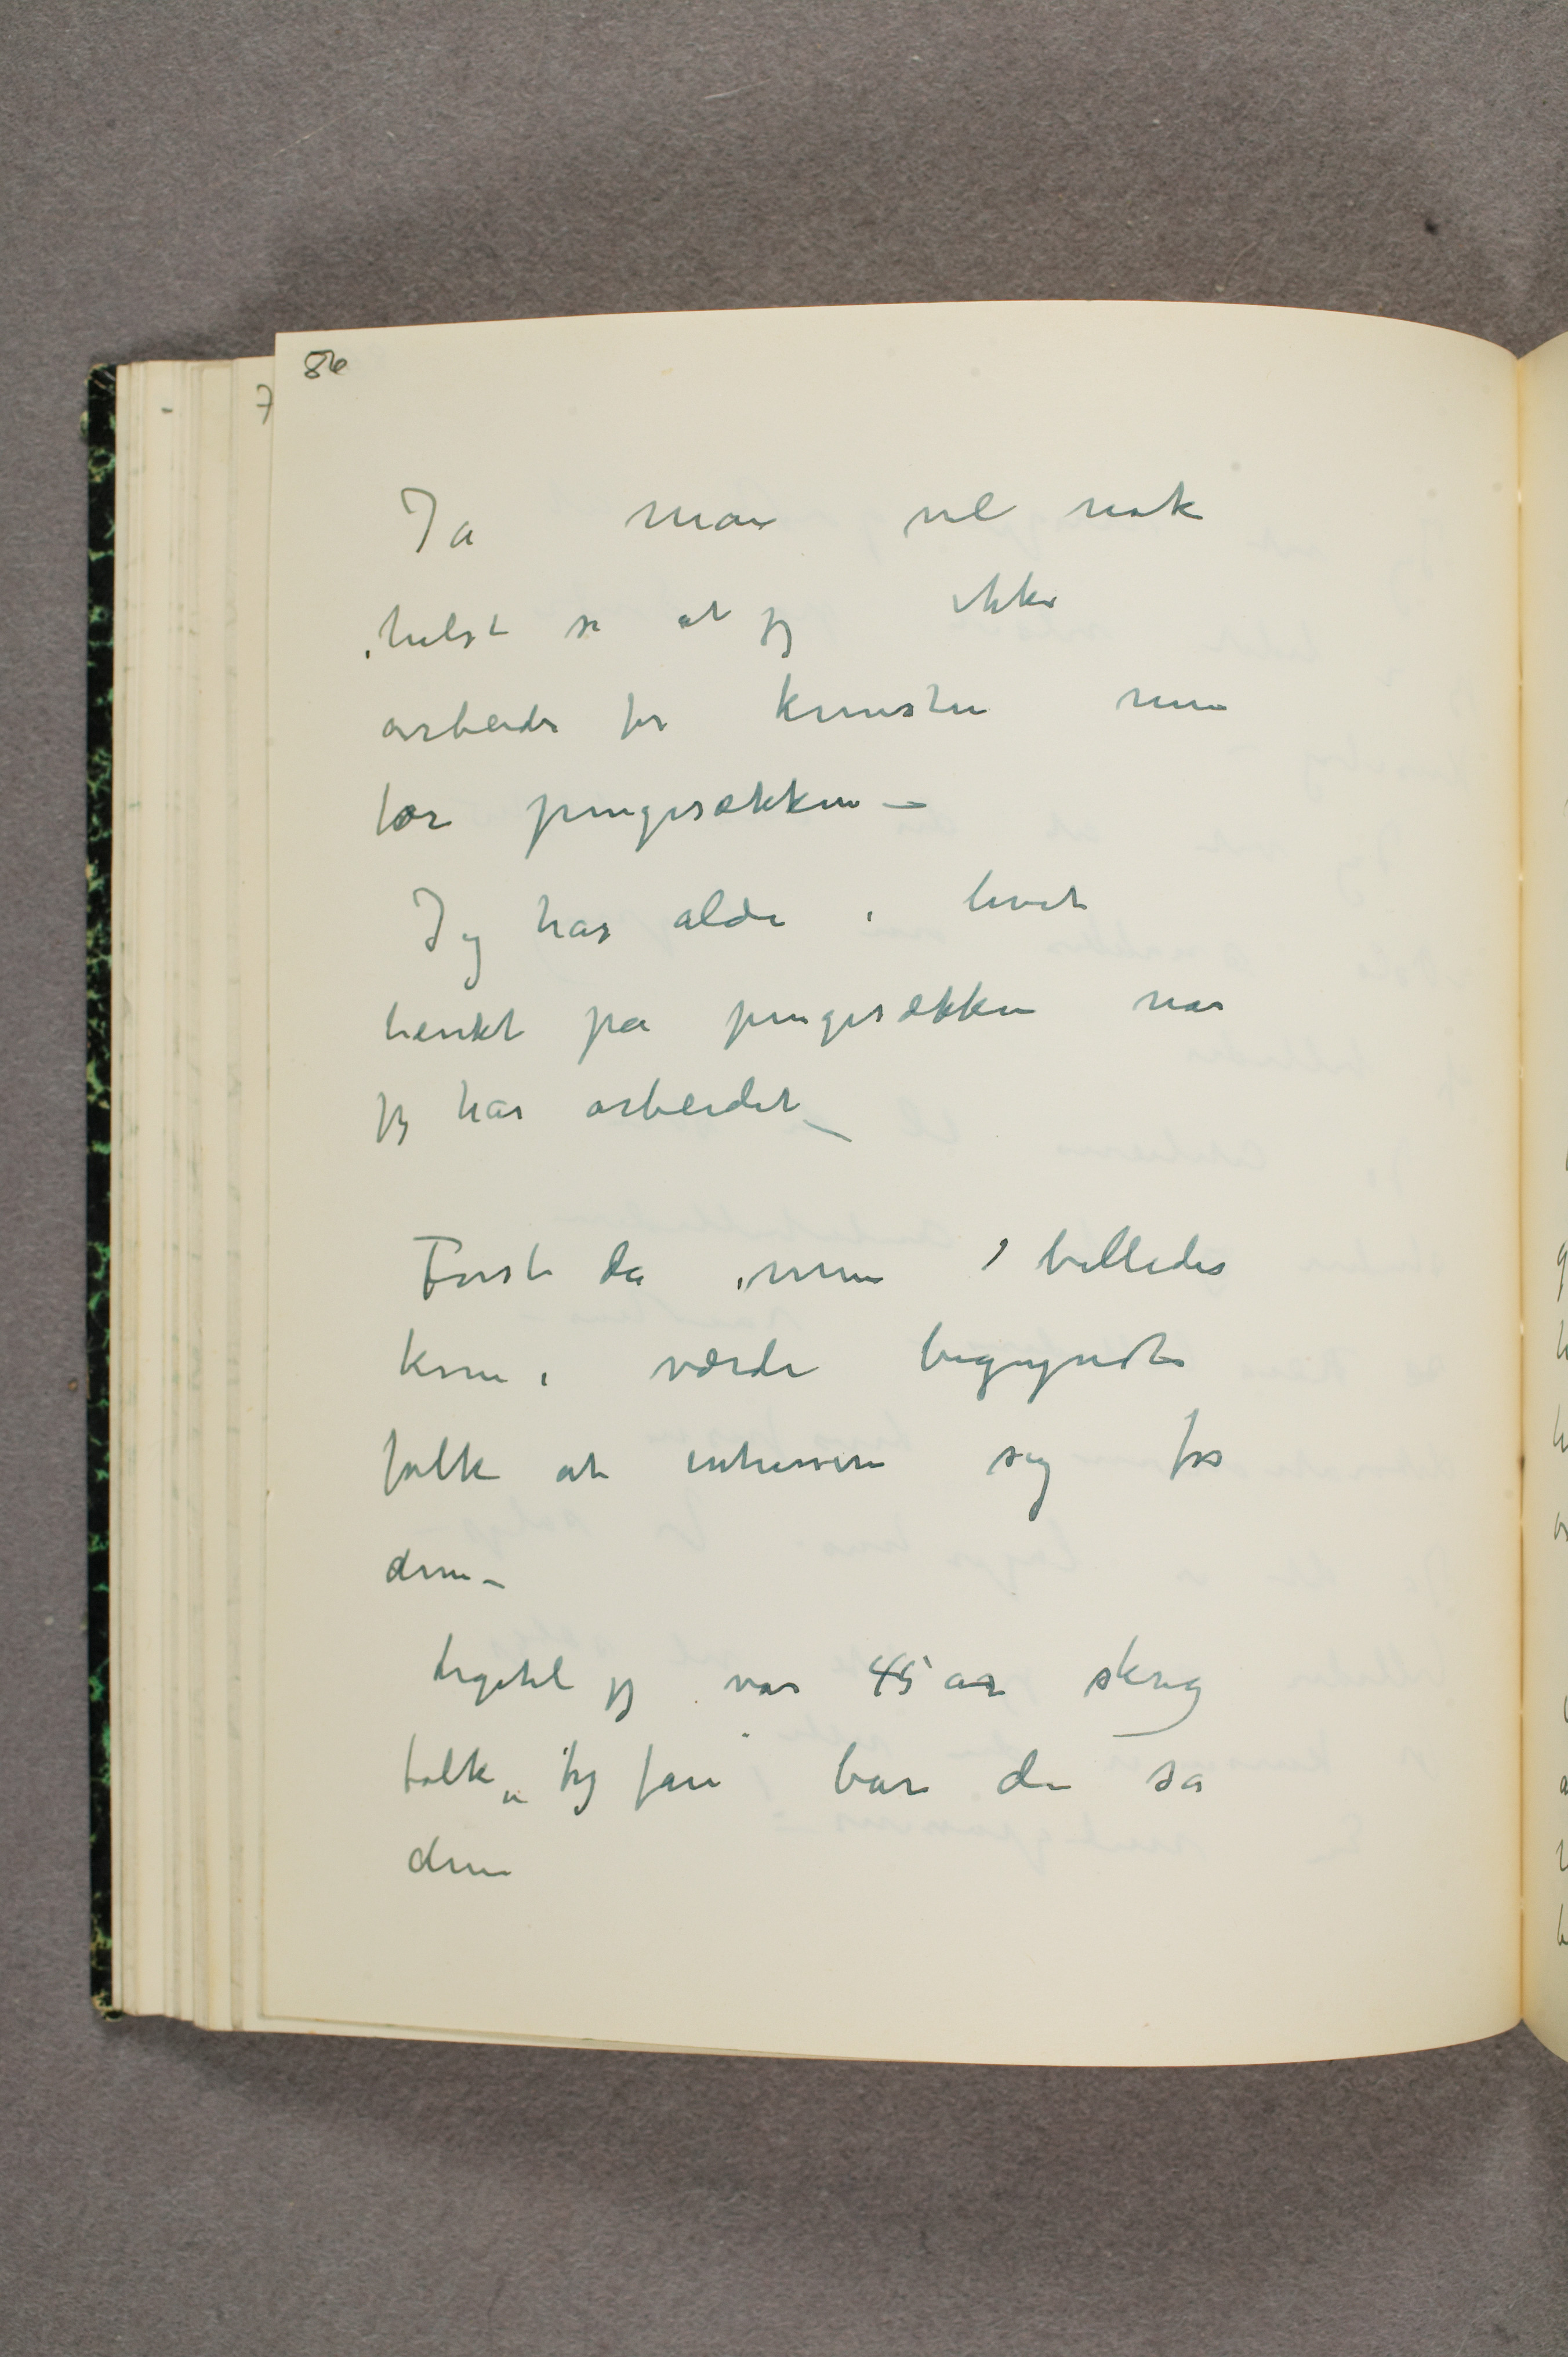 86
Ja man vil nok
helst se at jeg ikke
arbeider for kunsten men
for pengesækken –
Jeg har aldri i livet
tænkt på pengesækken når
jeg har arbeidet –
Først da mine billeder
kom i værdi begyndte
folk at interessere sig for
dem –
Ligetil jeg var 45 år skreg
folk „Fy fan" bare de så
dem